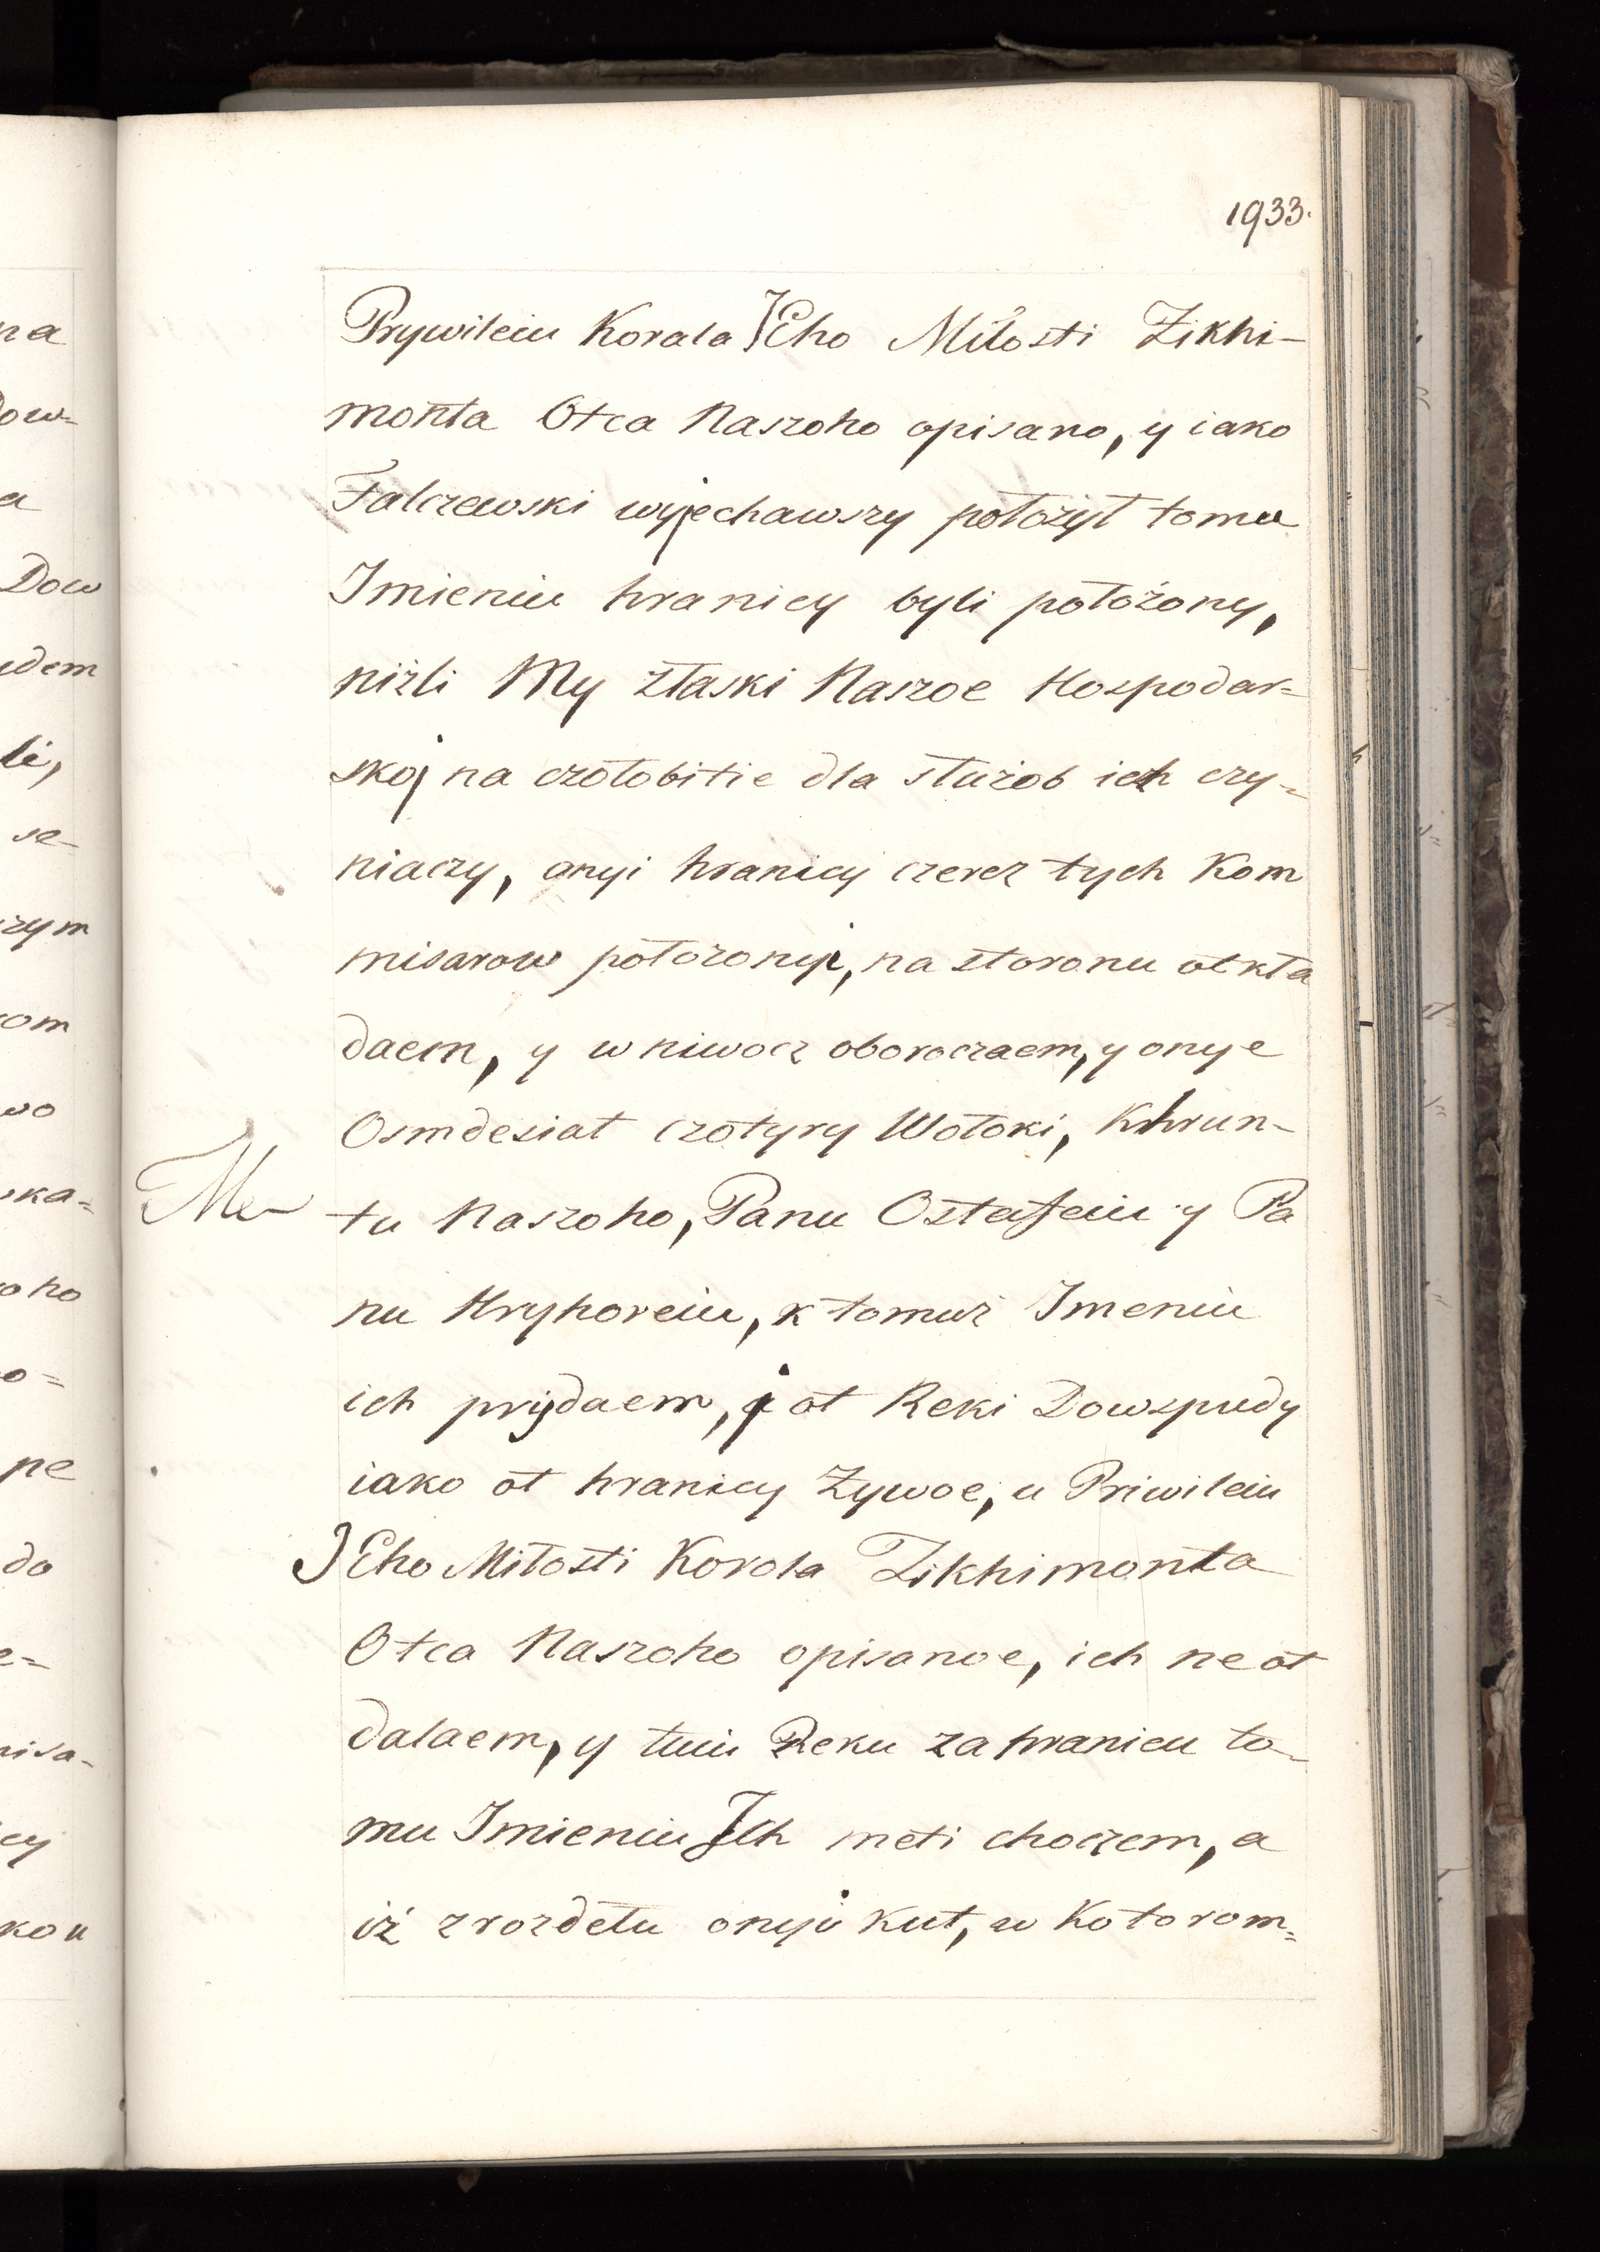 1933.
Prywileiu Korala JEho Miłosti Zikhi-
monta Otca Naszoho opisano, y iako
Falczewski wyjechawszy położył tomu
Imieniu hranicy byli położony,
niżli My złaski Naszoe Hospodar-
skoj na czołobitie dla służob ich czy-
niaczy, onyi hranicy czerez tych Kom
misarow położonyi, na storonu otkła
daem, y w niwocz oboroczaem, y onye
Osmdesiat czotyry Wołoki, Khrun-
tu Naszoho, Panu Ostafeiu y Pa
nu Hryhoreiu, k tomuż Imeniu
ich prydaem, i ot Reki Dowspudy
iako ot hranicy Żywoe, u Priwileiu
JEho Miłosti Korola Zikhimonta
Otca Naszoho opisanoe, ich ne ot
dalaem, y tuiu Reku za hranicu to-
mu Imieniu Ich meti choczem, a
iż z rozdełu onyi kut, w kotorom-